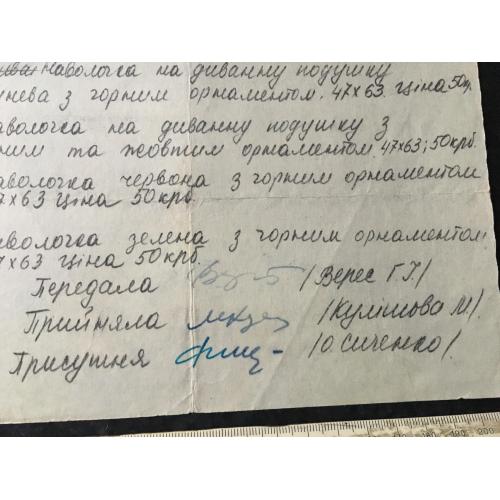 Наволочка на диванну подушку
з горним орнаментом. 47х63. ціна 50кр.
наволочка на диванну подушку з
ним та жовтим орнаментом. 47х63; 50крб.
аволочка червона з горним орнаментом
7х63 ціна 50крб.
аволочка зелена з горним орнаментом
7х63 ціна 50крб.
Передала /Верес Г.І/
Прийняла /Кулішова М/.
Присутня /О. Сиченко/.